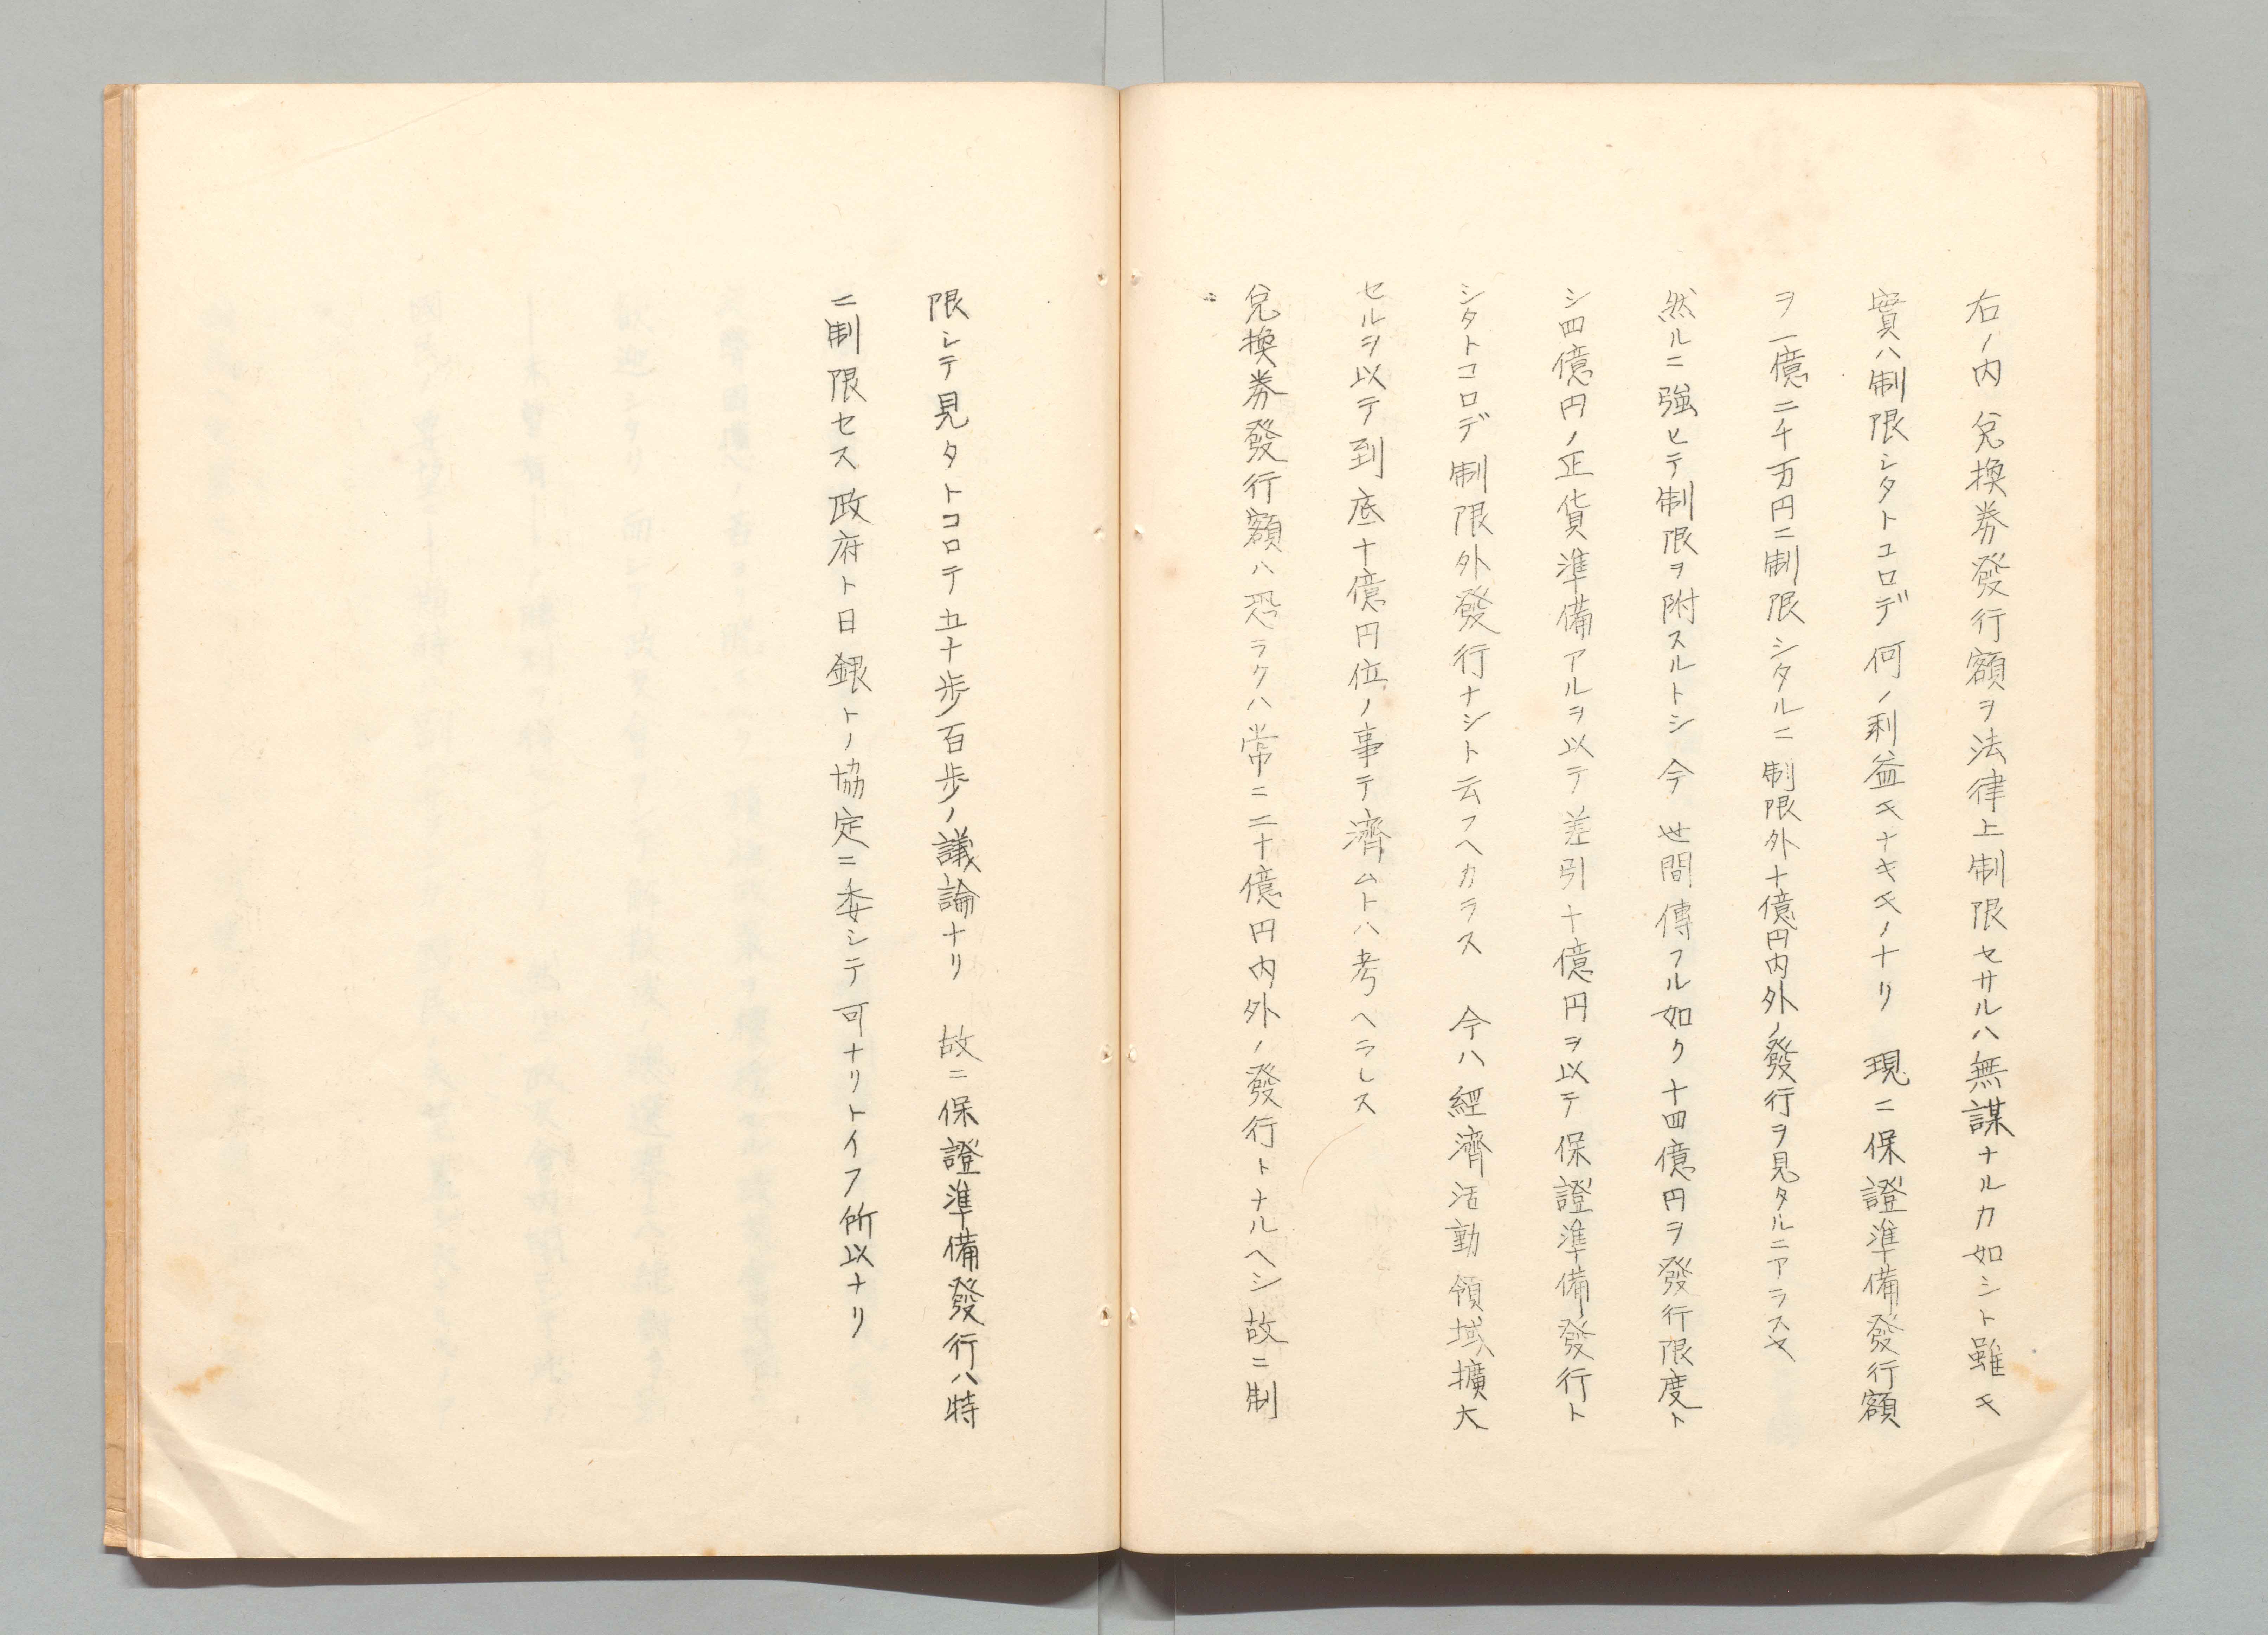 右ノ内 兌換券發行額ヲ法律上制限セサルハ無謀ナルカ如シト雖モ
實ハ制限シタトコロデ何ノ利益モナキモノナリ 現ニ保證準備發行額
ヲ一億二千万円ニ制限シタルニ制限外十億円内外ノ發行ヲ見タルニアラスヤ
然ルニ強ヒテ制限ヲ附スルトシ今 世間傳フル如ク十四億円ヲ發行限度ト
シ四億円ノ正貨準備アルヲ以テ差引十億円ヲ以テ保證準備發行ト
シタトコロデ制限外發行ナシト云フヘカラス 今ハ經濟活動領域擴大
セルヲ以テ到底十億円位ノ事テ濟ムトハ考ヘラレス
兌換券發行額ハ恐ラクハ常ニ二十億円内外ノ發行トナルヘシ故ニ制
限シテ見タトコロテ五十歩百歩ノ議論ナリ 故ニ保證準備發行ハ特
ニ制限セス政府ト日銀トノ協定ニ委シテ可ナリトイフ所以ナリ